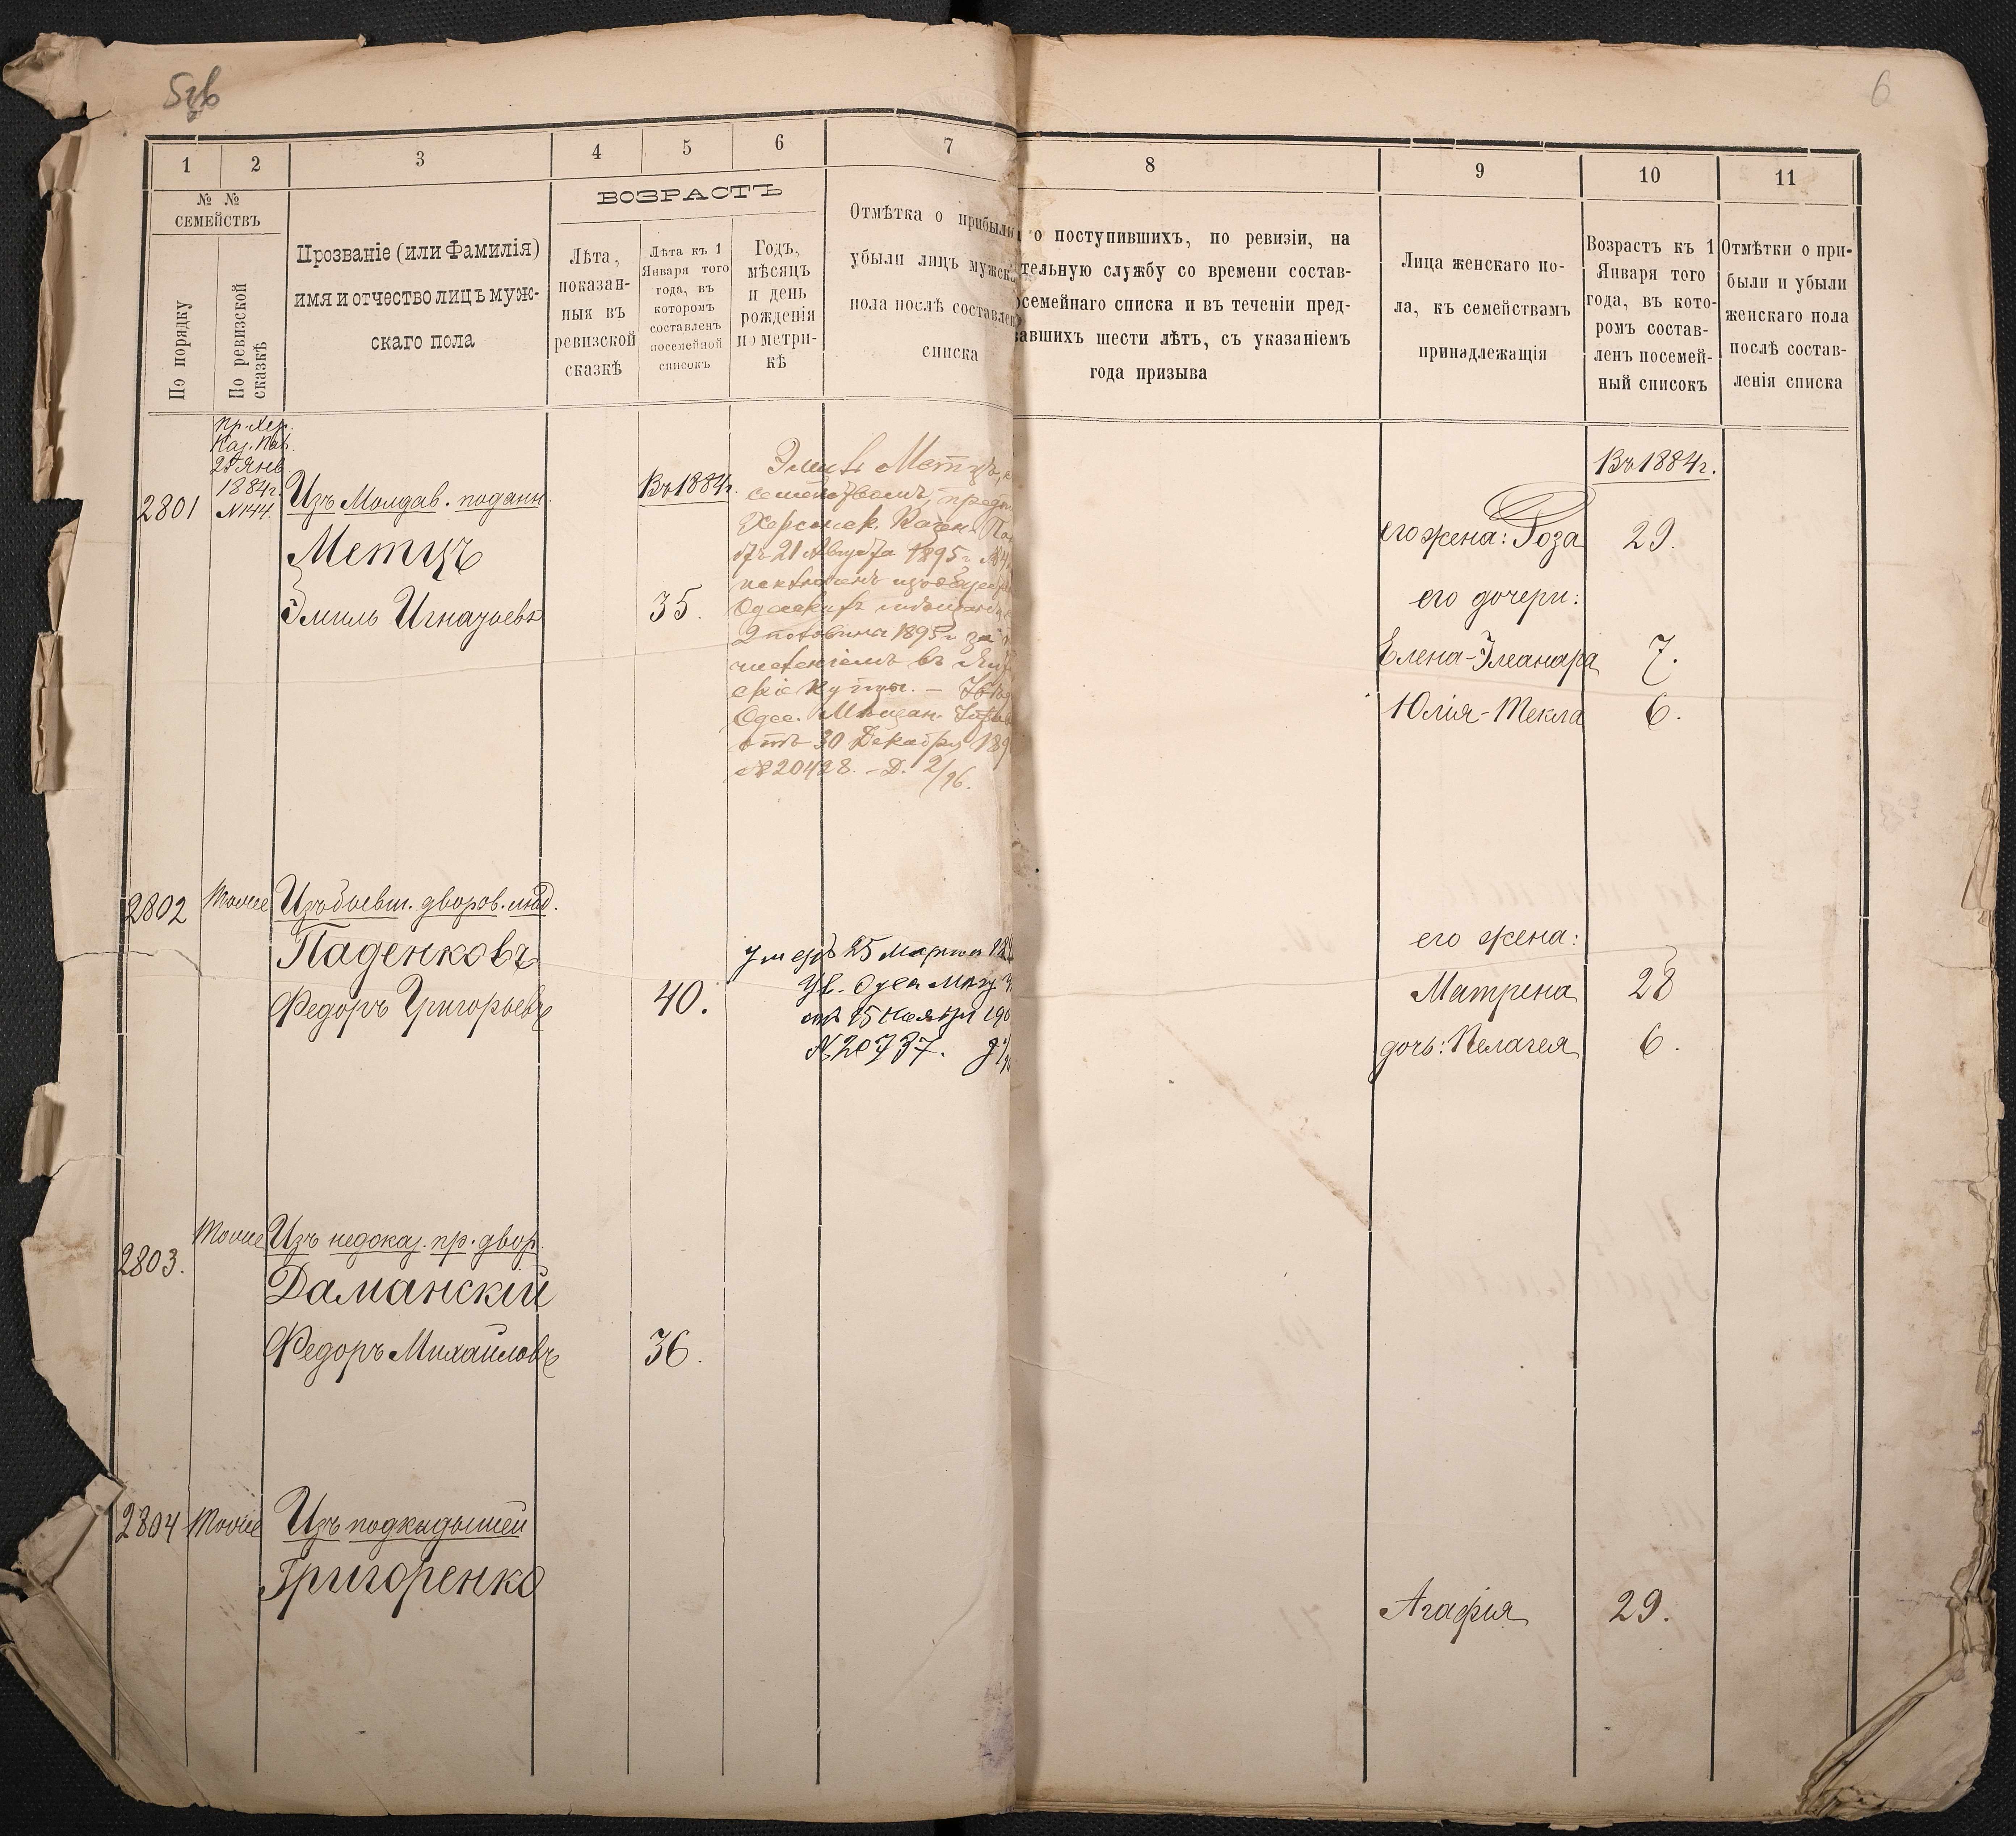 5
6
1 2 3 4 5 6 7
8 9 10 11
№ №
СЕМЕЙСТВЪ
По порядку
По ревизской
сказкѣ
Прозваніе (или Фамилія)
имя и отчество лицъ муж-
скаго пола
ВОЗРАСТЪ
Лѣта,
показан-
ныя въ
ревизской
сказкѣ
Лѣта къ 1
Января того
года, въ
которомъ
составленъ
посемейной
списокъ
Годъ,
мѣсяцъ
и день
рожденія
по метри-
кѣ
Отмѣтка о прибыли
убыли лицъ мужск
пола послѣ составлен
списка
о поступившихъ, по ревизіи, на
тельную службу со времени состав-
осемейнаго списка и въ теченіи пред-
авшихъ шести лѣтъ, съ указаніемъ
года призыва
Лица женскаго по-
ла, къ семействамъ
принадлежащія
Возрастъ къ 1
Января того
года, въ кото-
ромъ состав-
ленъ посемей-
ный списокъ
Отмѣтки о при-
были и убыли
женскаго пола
послѣ состав-
ленія списка
2801
пр. Хер.
Каз. Пал.
25 Янв.
1884г.
№144.
Изъ Молдав. поданн.
Метцъ
Эмиль Игнатьевъ
Въ 1884г.
35.
Эмиль Метцъ, с
семействомъ, предп
Херсонск. Казен. Па
отъ 21 Августа 1895 г. №
исключенъ изъ общес
Одесскихъ мѣщанъ
2 половина 1895 г. за
численіемъ въ
скіе купцы. – Увѣд
Одес. Мѣщан. Управ
отъ 30 Декабря 189
№20428. – Д. 2/96.
Въ 1884г.
его жена: Роза 29.
его дочери:
Елена-Элеанара 7.
Юлія-Текла 6.
2802
Тоже
Изъ бывш. дворов. люд.
Паденковъ
Федоръ Григорьевъ
40.
умеръ 25 Марта 18
Ув. Одес Мѣщ. У
отъ 15 Ноября 190
№20737.
его жена:
Матрена 28
дочь: Пелагея 6.
2803.
Тоже
Изъ недоказ. пр. двор.
Даманскій
Федоръ Михайловъ
36.
2804
Тоже
Изъ подкидышей
Григоренко
Агафія 29.